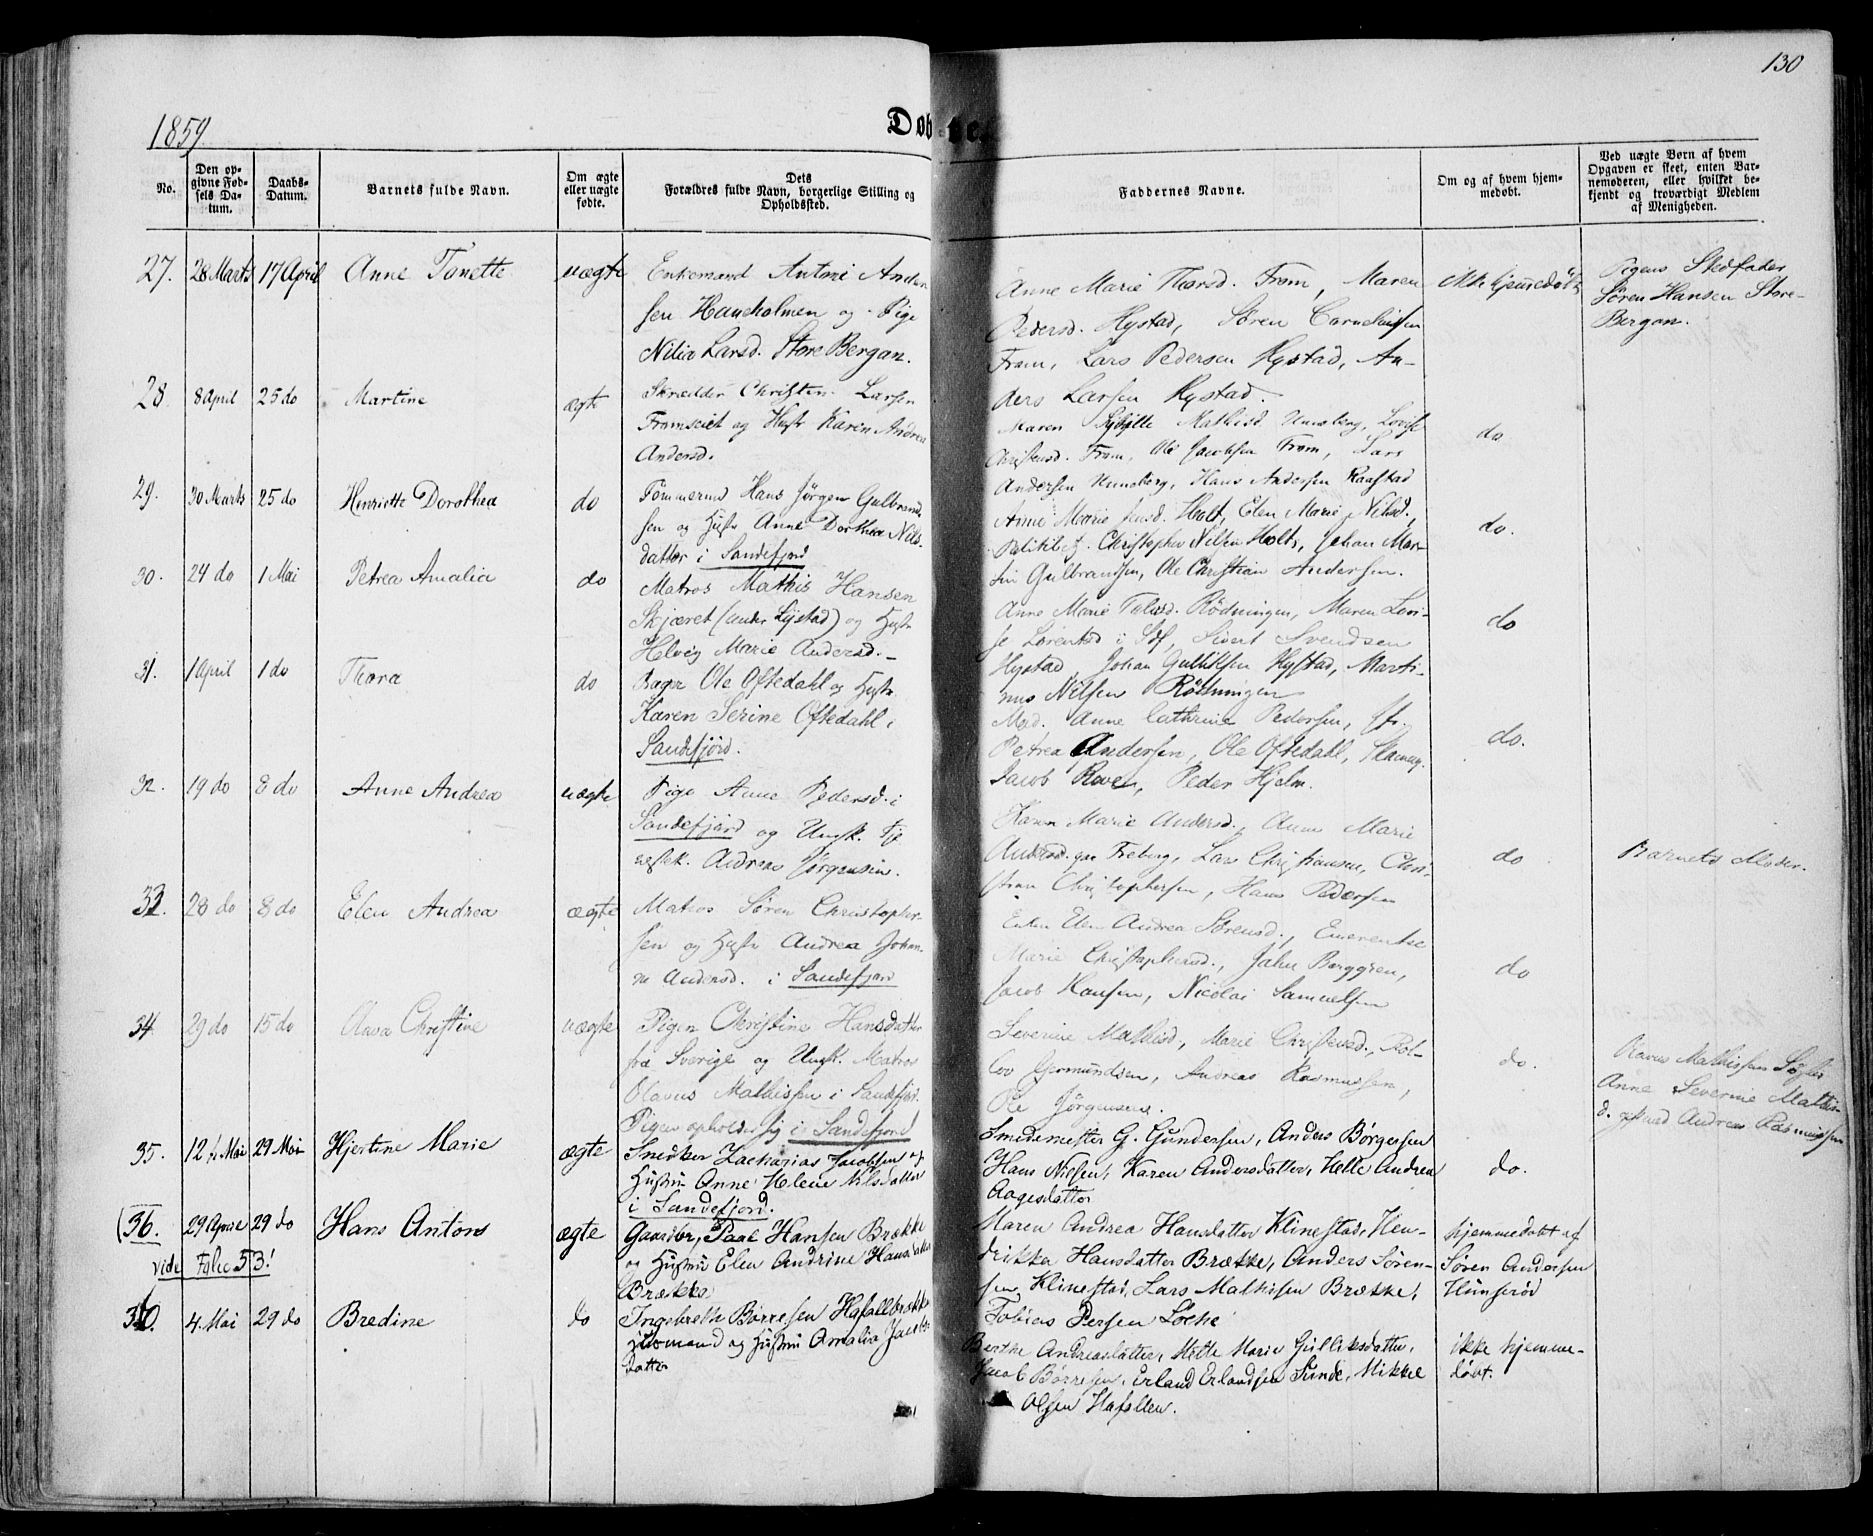 130
1859.
Døbte.
No.
Den opgivne Fødsels Datum.
Daabs-Datum.
Barnets fulde Navn.
Om ægte eller uægte fødte.
Dets Forældres fulde Navn, borgerlige Stilling og Opholdssted.
Faddernes Navne.
Om og af hvem hjemmedøbt.
Ved uægte Børn af hvem Opgaven er skeet, enten Barnemoderen, eller hvilket bekjendt og troværdigt Medlem af Menigheden.
27. 28 Marts 17 April Anne Tonette uægte
Enkemand Antoni Ander
sen Haneholmen og Pige
Nilia Larsd. Store Bergan.
Anne Marie Thorsd. Fram, Maren
Pedersd. Hystad, Søren Corneliussen
Fram, Lars Pedersen Hystad, An-
ders Larsen Hystad.
ikke hjemmedøbt
Pigens Stedfader
Søren Hansen Store-
Bergan.
28. 8 April 25 do Martine ægte
Skrædder Christen Larsen
Framseiet og Hustr Karen Andrea
Andersd.
Maren Mathisd. Unneberg, Lovise
Christensd. Fram, Ole Jacobsen Fram, Lars
Andersen Unneberg, Hans Andersen Raastad
do
29. 30 Marts 25 do Henriette Dorothea do
Tømmermd Hans Jørgen Gulbrand
sen og Hustr Anne Dorthea Nils-
datter i Sandefjord
Anne Marie Holt, Elen Marie Nilsd.,
Christopher Nilsen Holt, Johan Mar-
tin Gulbrandsen, Ole Christian Andersen.
do.
30. 24 do 1 Mai Petrea Amalia do
Matros Mathis Hansen
Skjæret (under Hystad) og Hustr
Helvig Marie Andersd. -
Anne Marie Rødningen, Maren Lovi-
se Lorentsd i Sdf, Sivert Svendsen
Hystad, Johan Gullichsen Hystad, Marti-
nus Nilsen Rødningen
do
31. 1 April 1 do Thora do
Bager Ole Oftedahl og Hustr
Karen Serine Oftedahl i
Sandefjord.
Anne Cathrine Pedersen,
Petrea Andersen, Ole Oftedahl,
Jacob Roven, Peder Hjelm.
do.
32. 19 do 8 do Anne Andrea uægte
Pige Anne Pedersd. i
Sandefjord og Ungk. Tje
nestek. Andreas Jørgensen.
Karen Marie Andersd., Anne Marie
Andersd. Freberg, Lars Christiansen, Chri-
stian Christophersen, Hans Pedersen
do
Barnets Moder.
33. 28 do 8 do Elen Andrea ægte
Matros Søren Christopher-
sen og Hustr Andrea Johan-
ne Andersd. i Sandefjord
Enken Elen Andrea Sørensd., Emerentse
Marie Christophersd., John Berggren,
Jacob Hansen, Nicolai Samuelsen
do
34 29 do 15 do Anna Christine uægte
Pigen Christine Hansdatter
fra Sverige og Ungk. Matros
Olavus Mathissen i Sandefjord.
Pigen opholder sig i Sandefjord
Severine Mathisd., Marie Christensd., Rol-
lov Germundsen, Andreas Rasmussen,
Ole Jørgensen.
do.
Olavus Mathissens Søster
Anne Severine Mathis
d. Andreas Rasmussen
35. 12 Mai 29 Mai Hjertine Marie ægte
Snedker Zacharias Jacobsen og
Hustru Anne Helene Nilsdatter
i Sandefjord.
Smedemester G. Gundersen, Anders Børgersen
Hans Nilsen, Karen Andersdatter, Helle Andrea
Aagesdatter
do.
36. 29 April 29 do Hans Anton ægte
vide Folio 53!
Gaardbr. Paul Hansen Brække
og Hustru Elen Andrine Hansdatter
Brække
Maren Andrea Hansdatter Klinestad, Hen-
drikka Hansdatter Brække, Anders Søren-
sen Klinestad, Lars Mathisen Brække,
Tobias Persen Løcke
hjemmedøbt af
Søren Andersen
Hunserød
4. Mai 29 do Bredine do
Ingebreth Børresen Hafallbrække
Huusmand og Hustru Amalia Jacobs
datter
Berthe Andreasdatter, Mette Marie Gulliksdatter,
Jacob Børresen, Erland Erlandsen Sunde, Mikkel
Olsen Hafallen.
ikke hjemme-
døbt.